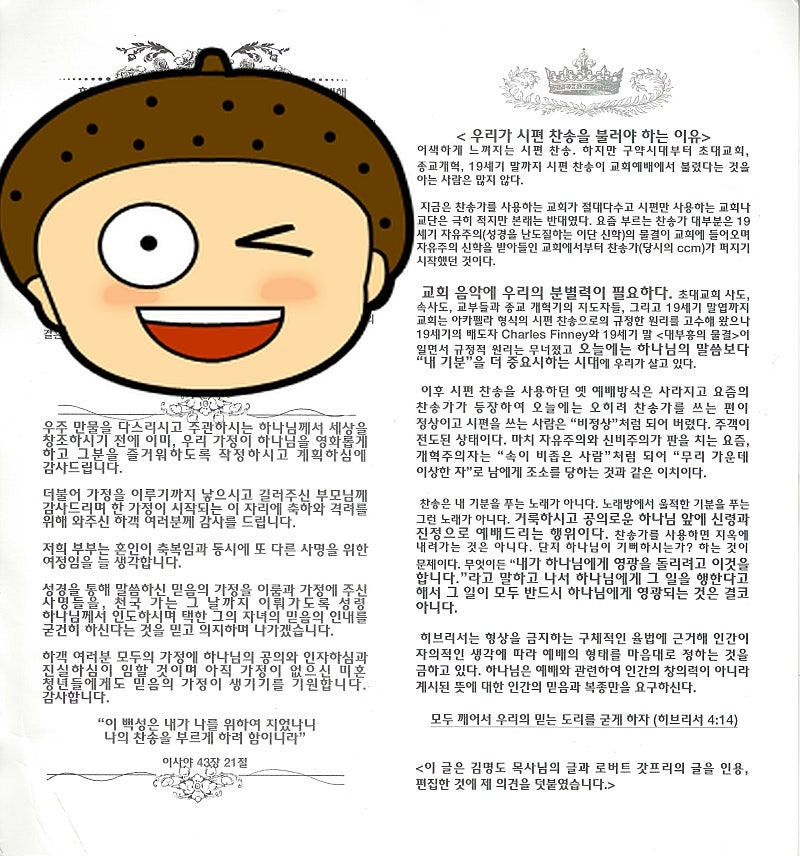 우주 만물을 다스리시고 주관하시는 하나님께서 세상을
창조하시기 전에 이미, 우리 가정이 하나님을 영화롭게
하고 그분을 즐거워하도록 작정하시고 계획하심에
감사드립니다.
더불어 가정을 이루기까지 낳으시고 길러주신 부모님께
감사드리며 한 가정이 시작되는 이 자리에 축하와 격려를
위해 와주신 하객 여러분께 감사를 드립니다.
저희 부부는 혼인이 축복임과 동시에 또 다른 사명을 위한
여정임을 늘 생각합니다.
성경을 통해 말씀하신 믿음의 가정을 이룸과 가정에 주신
사명들을, 천국 가는 그 날까지 이뤄가도록 성령
하나님께서 인도하시며 택한 그의 자녀의 믿음의 인내를
굳건히 하신다는 것을 믿고 의지하며 나가겠습니다.
하객 여러분 모두의 가정에 하나님의 공의와 인자하심과
진실하심이 임할 것이며 아직 가정이 없으신 미혼
청년들에게도 믿음의 가정이 생기기를 기원합니다.
감사합니다.
“이 백성은 내가 나를 위하여 지었나니
나의 찬송을 부르게 하려 함이니라”
이사야 43장 21절
< 우리가 시편 찬송을 불러야 하는 이유>
어색하게 느껴지는 시편 찬송. 하지만 구약시대부터 초대교회,
종교개혁, 19세기 말까지 시편 찬송이 교회예배에서 불렸다는 것을
아는 사람은 많지 않다.
지금은 찬송가를 사용하는 교회가 절대다수고 시편만 사용하는 교회나
교단은 극히 적지만 본래는 반대였다. 요즘 부르는 찬송가 대부분은 19
세기 자유주의(성경을 난도질하는 이단 신학)의 물결이 교회에 들어오며
자유주의 신학을 받아들인 교회에서부터 찬송가(당시의 ccm)가 퍼지기
시작했던 것이다.
교회 음악에 우리의 분별력이 필요하다. 초대교회 사도,
속사도, 교부들과 종교 개혁기의 지도자들, 그리고 19세기 말엽까지
교회는 아카펠라 형식의 시편 찬송으로의 규정한 원리를 고수해 왔으나
19세기의 배도자 Charles Finney와 19세기 말 <대부흥의 물결>이
일면서 규정적 원리는 무너졌고 오늘에는 하나님의 말씀보다
“내 기분”을 더 중요시하는 시대에 우리가 살고 있다.
이후 시편 찬송을 사용하던 옛 예배방식은 사라지고 요즘의
찬송가가 등장하여 오늘에는 오히려 찬송가를 쓰는 편이
정상이고 시편을 쓰는 사람은 “비정상”처럼 되어 버렸다. 주객이
전도된 상태이다. 마치 자유주의와 신비주의가 판을 치는 요즘,
개혁주의자는 “속이 비좁은 사람”처럼 되어 “무리 가운데
이상한 자”로 남에게 조소를 당하는 것과 같은 이치이다.
찬송은 내 기분을 푸는 노래가 아니다. 노래방에서 울적한 기분을 푸는
그런 노래가 아니다. 거룩하시고 공의로운 하나님 앞에 신령과
진정으로 예배드리는 행위이다. 찬송가를 사용하면 지옥에
내려가는 것은 아니다. 단지 하나님이 기뻐하시는가? 하는 것이
문제이다. 무엇이든 “내가 하나님에게 영광을 돌리려고 이것을
합니다.”라고 말하고 나서 하나님에게 그 일을 행한다고
해서 그 일이 모두 반드시 하나님에게 영광되는 것은 결코
아니다.
히브리서는 형상을 금지하는 구체적인 율법에 근거해 인간이
자의적인 생각에 따라 예배의 형태를 마음대로 정하는 것을
금하고 있다. 하나님은 예배와 관련하여 인간의 창의력이 아니라
계시된 뜻에 대한 인간의 믿음과 복종만을 요구하신다.
모두 깨어서 우리의 믿는 도리를 굳게 하자 (히브리서 4:14)
<이 글은 김명도 목사님의 글과 로버트 갓프리의 글을 인용,
편집한 것에 제 의견을 덧붙였습니다.>